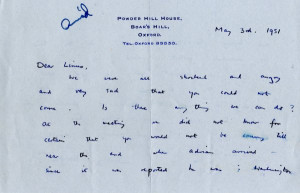 POWDER HILL HOUSE,
BOAR'S HILL,
OXFORD.
TEL. OXFORD 85550.
May 3rd. 1951
Dear Linus,
We were all shocked and angry
and very sad that you could not
come. Is there anything we can do?
At the meeting we did not know for
certain that you would not be coming till
near the end when Adrian arrived –
since it was reported he was in Washington